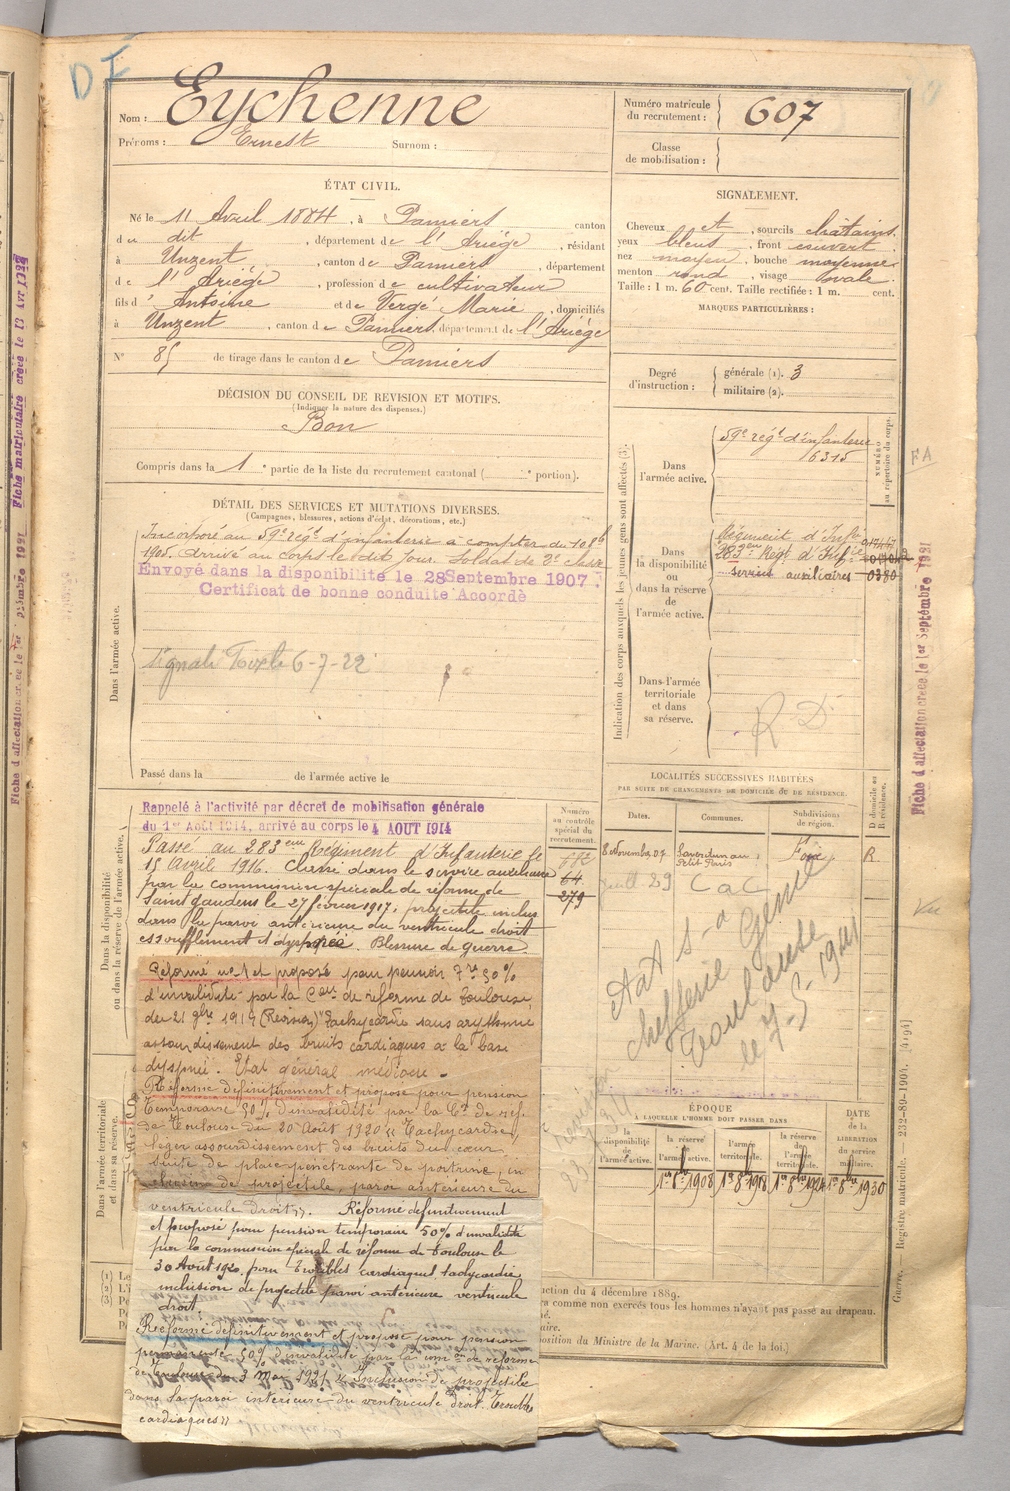 DF
Nom : Eychenne
Prénoms : Ernest Surnom :
Numéro matricule du recrutement : 607
Classe de mobilisation :
ÉTAT CIVIL.
Né le 11 Avril 1884, à Pamiers canton
du dit, département de l'Ariège, résidant
à Unzent, canton de Pamiers, département
de l'Ariège, profession de cultivateur
fils d'Antoine et de Vergé Marie, domiciliés
à Unzent, canton de Pamiers, département de l'Ariège
N° 85 de tirage dans le canton de Pamiers
SIGNALEMENT.
Cheveux et, sourcils châtains
yeux bleus, front couvert
nez moyen, bouche moyenne
menton rond, visage ovale.
Taille : 1 m. 60 cent. Taille rectifiée : 1 m. cent.
MARQUES PARTICULIÈRES :
Degré d'instruction : générale (1). 3
militaire (2).
DÉCISION DU CONSEIL DE REVISION ET MOTIFS.
(Indiquer la nature des dispenses.)
Bon
Compris dans la 1e partie de la liste du recrutement cantonal ( e portion).
DÉTAIL DES SERVICES ET MUTATIONS DIVERSES.
(Campagnes, blessures, actions d'éclat, décorations, etc.)
Dans l'armée active.
Incorporé au 59e régt d'infanterie à compter du 10 8bre
1905. Arrivé au corps le dit jour. Soldat de 2e classe
Envoyé dans la disponibilité le 28 Septembre 1907.
Certificat de bonne conduite Accordé
6-7-22
Passé dans la de l'armée active le
Indication des corps auxquels les jeunes gens sont affectés (3).
NUMÉRO au répertoire du corps.
Dans l'armée active.
59e régt d'infanterie
6315
Dans la disponibilité ou dans la réserve de l'armée active.
Régiment d'Infie
283eme Régt d'Infie
services auxiliaires 0380
Dans l'armée territoriale et dans sa réserve.
R. D.
FA
Vu
Fiche d'affectation créée le 1er Septembre 1921
Fiche matriculaire créée le 13 Avr
Dans la disponibilité ou dans la réserve de l'armée active.
Rappelé à l'activité par décret de mobilisation générale
du 1er Août 1914, arrivé au corps le 4 AOUT 1914
Passé au 283eme Régiment d'Infanterie le
15 avril 1916. Classé dans le service auxiliaire
par la commission spéciale de réforme de
Saint Gaudens le 27 février 1917, projectile inclus
dans la paroi antérieure du ventricule droit
essoufflement et dyspnée. Blessure de guerre
Réformé n° 1 et proposé pour pension 7e 30 %
d'invalidité par la Con de réforme de Toulouse
du 21 9bre 1917 (Revision) "Tachycardie sans arythmie
assourdissement des bruits cardiaques à la base
dyspnée. Etat général médiocre.
Dans l'armée territoriale et dans sa réserve.
Réformé définitivement et proposé pour pension
Temporaire 50% d'invalidité par la Con de réf.
de Toulouse du 30 Août 1920 "Tachycardie,
léger assourdissement des bruits du cœur
suite de plaie pénétrante de poitrine, in
clusion de projectile, paroi antérieure du
ventricule droit". Réformé définitivement
et proposé pour pension temporaire 50% d'invalidité
par la commission spéciale de réforme de Toulouse le
30 Aout 1920 pour Troubles cardiaques tachycardie
inclusion de projectile paroi antérieure ventricule
droit.
Réformé définitivement et proposé pour pension
permanente 50% d'invalidité par la comon de réforme
de Toulouse du 3 Mai 1921 "Inclusion de projectile
dans la paroi intérieure du ventricule droit. Troubles
cardiaques"
Numéro au contrôle spécial du recrutement.
64
279
LOCALITÉS SUCCESSIVES HABITÉES
PAR SUITE DE CHANGEMENTS DE DOMICILE OU DE RÉSIDENCE.
Dates. Communes. Subdivisions de région. D domicile ou R résidence.
8 Novembre 07 Saverdun au Petit Paris Foix R.
29 CaC
Etat S-a
chefferie Génie
Toulouse
le 7-5-1941
ÉPOQUE
À LAQUELLE L'HOMME DOIT PASSER DANS
la disponibilité de l'armée active.
la réserve de l'armée active. 1er 8bre 1908
l'armée territoriale. 1er 8bre 1918
la réserve de l'armée territoriale. 1er 8bre 1924
DATE de la LIBÉRATION du service militaire. 1er 8bre 1930
(1) Le
(2) L'i
(3) P
ction du 4 décembre 1889.
ra comme non exercés tous les hommes n'ayant pas passé au drapeau.
position du Ministre de la Marine. (Art. 4 de la loi.)
Guerre. — Registre matricule. — 232-89-1904. [4194]